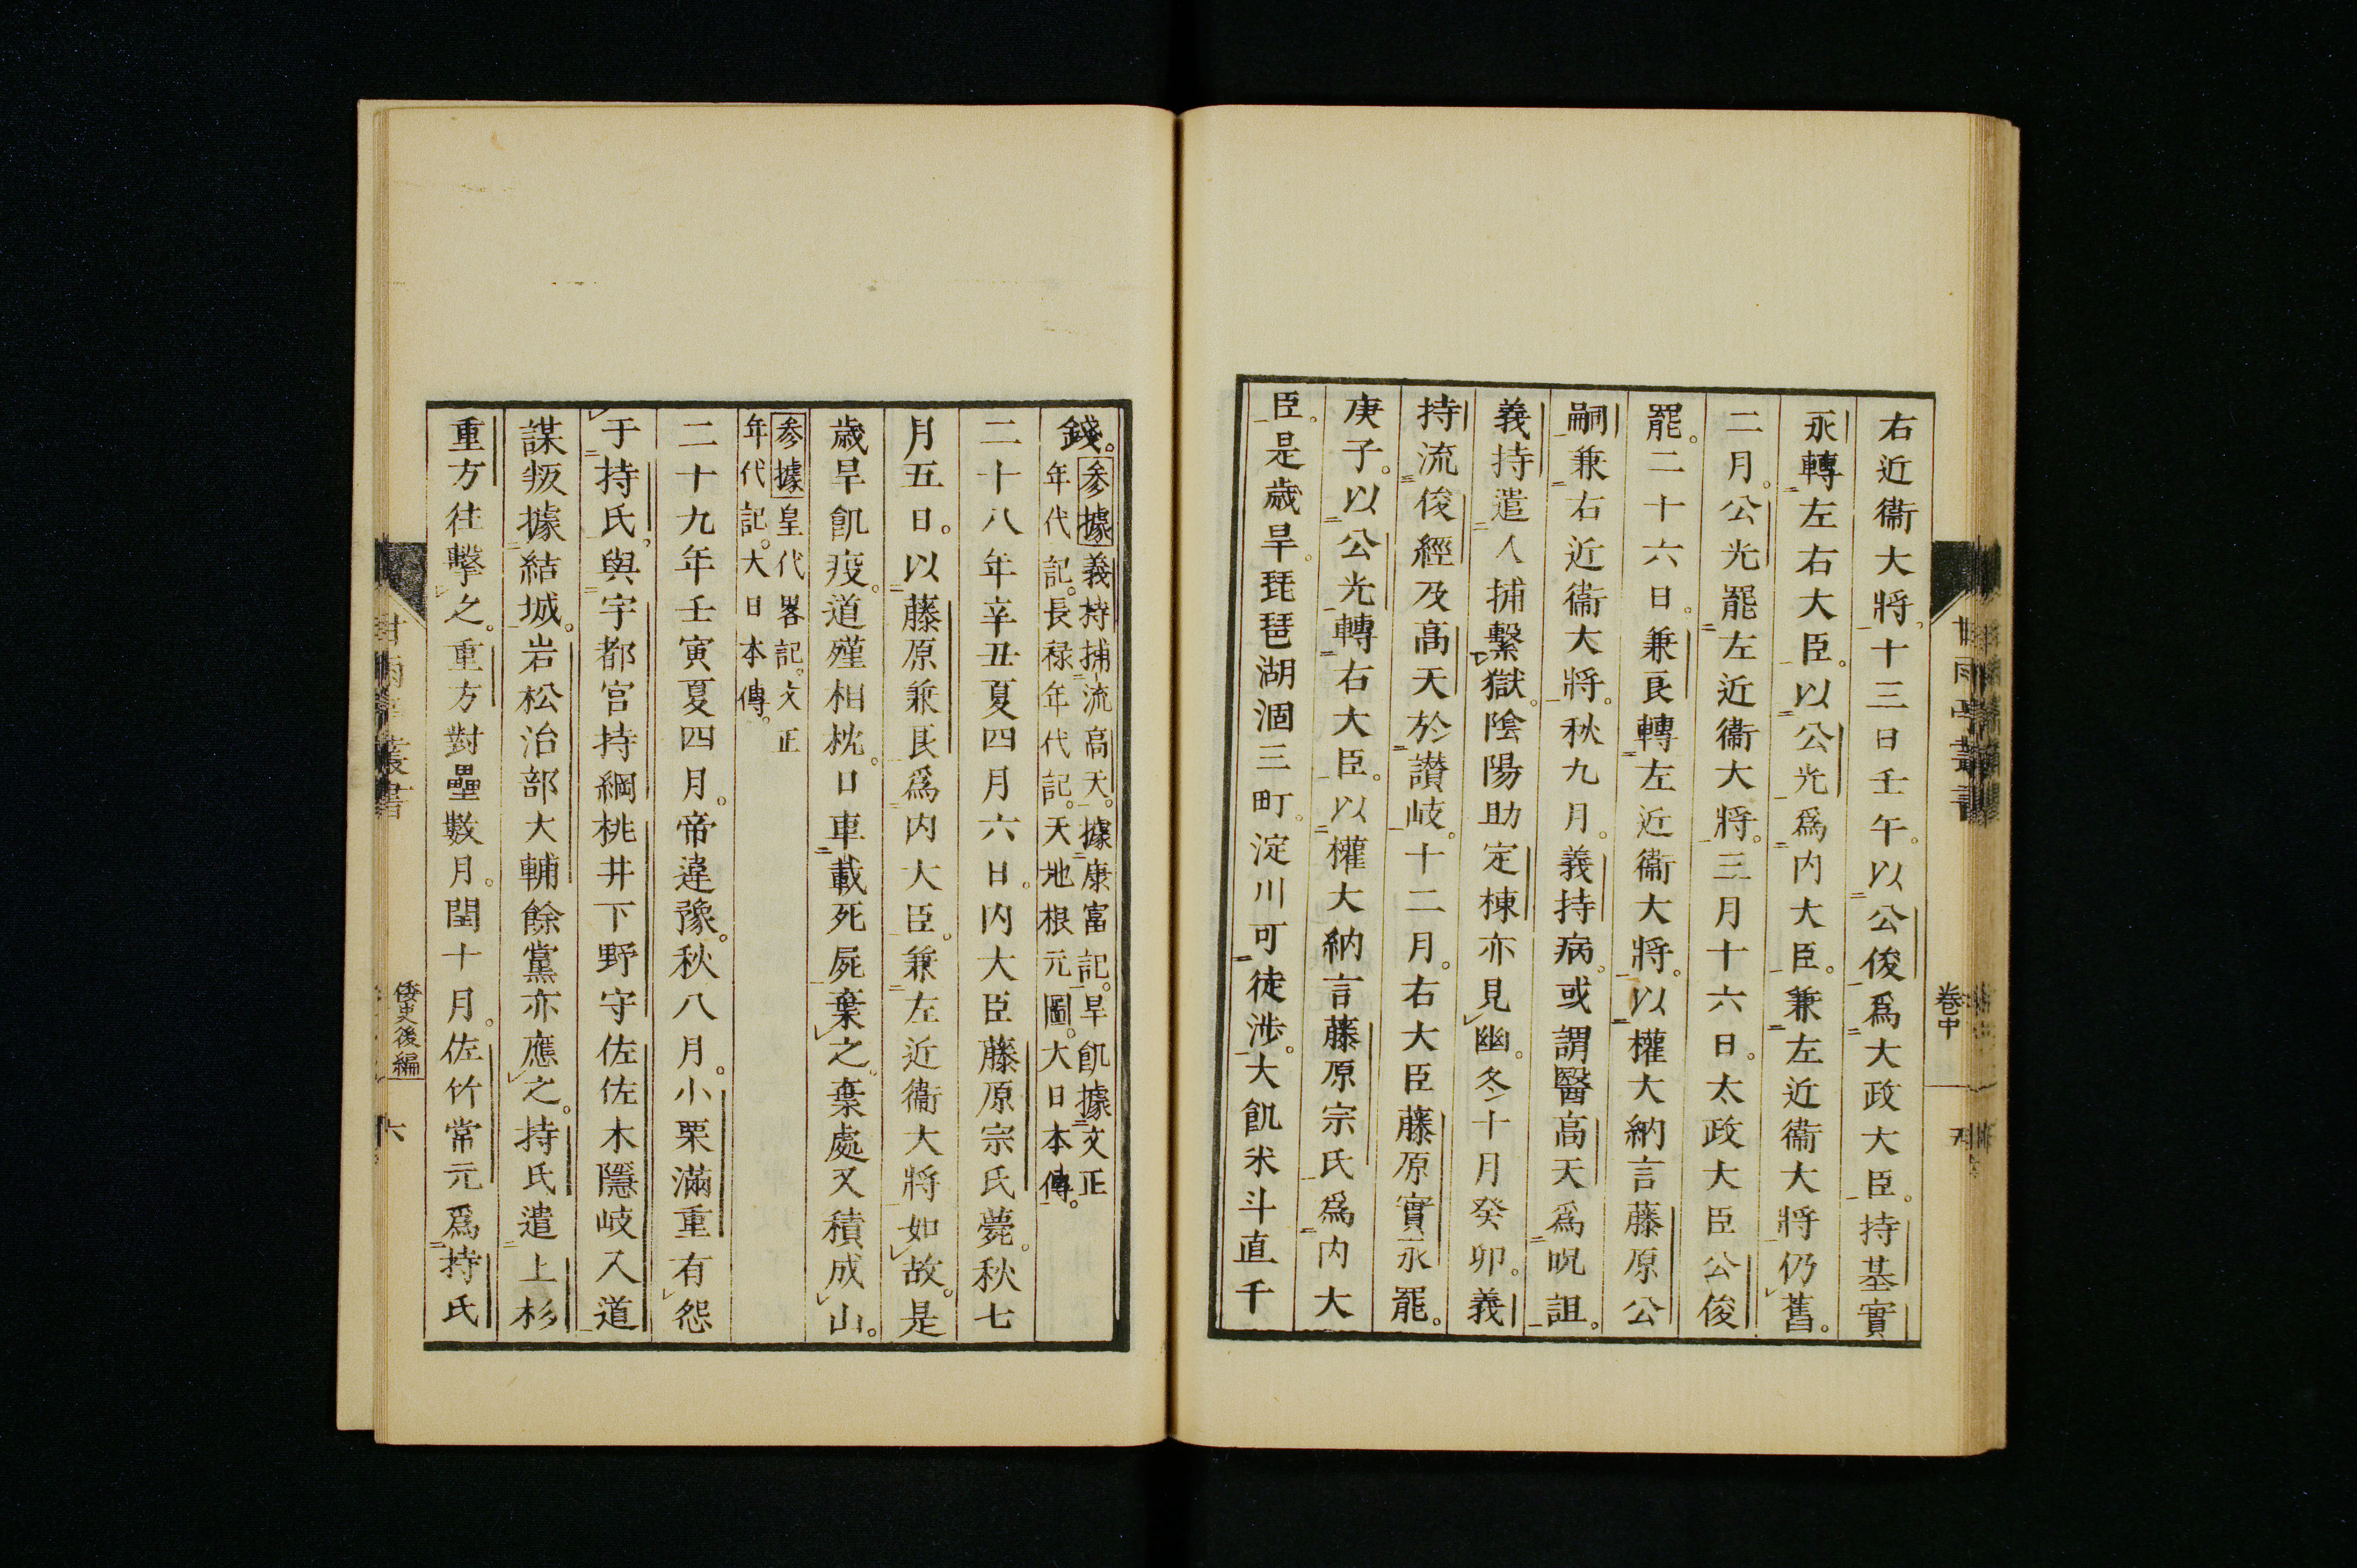 右近衞大將。十三日壬午。以公俊爲大政大臣。持基實
永轉左右大臣。以公光爲内大臣。兼左近衞大將仍舊。
二月。公光罷左近衞大將。三月十六日。太政大臣公俊
罷。二十六日。兼良轉左近衞大將。以權大納言藤原公
嗣兼右近衞大將。秋九月。義持病。或謂醫高天爲呪詛。
義持遣人捕繫獄。陰陽助定棟亦見幽。冬十月癸卯。義
持流俊經及高天於讃岐。十二月。右大臣藤原實永罷。
庚子。以公光轉右大臣。以權大納言藤原宗氏爲内大
臣。是歲旱。琵琶湖涸三町。淀川可徒涉。大飢米斗直千
卷中
錢。參據義持捕流高天。據康富記。旱飢據文正
年代記。長祿年代記。天地根元圖。大日本傳。
二十八年辛丑夏四月六日。内大臣藤原宗氏薨。秋七
月五日。以藤原兼良爲内大臣。兼左近衞大將如故。是
歲旱飢疫。道殣相枕。日車載死屍棄之。棄處又積成山。
參據皇代畧記。文正
年代記。大日本傳。
二十九年壬寅夏四月。帝違豫。秋八月。小栗滿重有怨
于持氏。與宇都宮持綱桃井下野守佐佐木隱岐入道
謀叛據結城。岩松治部大輔餘黨亦應之。持氏遣上杉
重方往擊之。重方對壘數月。閏十月。佐竹常元爲持氏
倭史後編
六